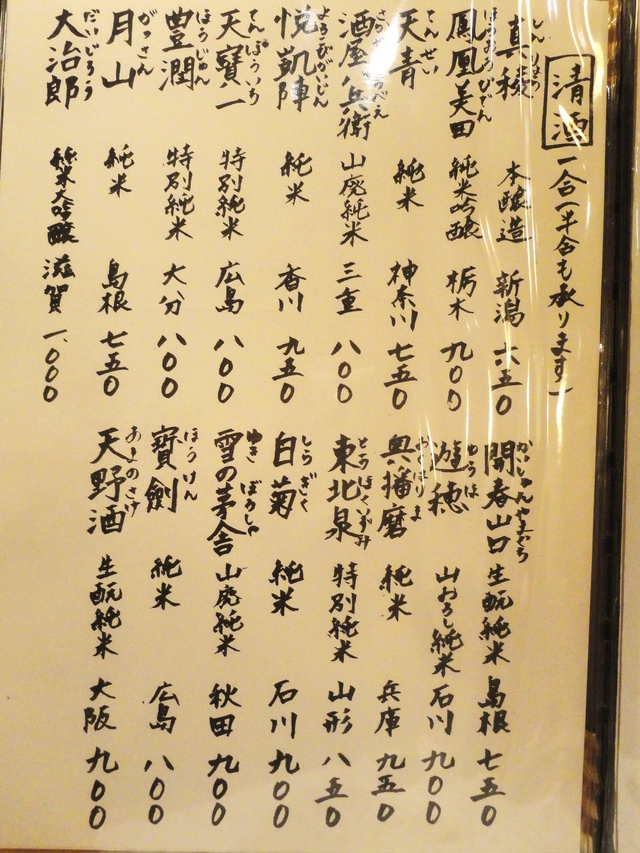 清酒 一合(半合も承ります)
しんりょう
真稜 本醸造 新潟 六五〇
ほうおうびでん
鳳凰美田 純米吟醸 栃木 九〇〇
てんせい
天青 純米 神奈川 七五〇
酒屋八兵衛 山廃純米 三重 八〇〇
よろこびがいじん
悦凱陣 純米 香川 九五〇
てんぽういち
天寶一 特別純米 広島 八〇〇
ほうじゅん
豊潤 特別純米 大分 八〇〇
がっさん
月山 純米 島根 七五〇
だいじろう
大治郎 純米大吟醸 滋賀 一、〇〇〇
かいしゅんやまぐち
開春山口 生酛純米 島根 七五〇
ゆうほ
遊穂 山おろし純米 石川 九〇〇
おくはりま
奥播磨 純米 兵庫 九五〇
とうほくいずみ
東北泉 特別純米 山形 八五〇
しらぎく
白菊 純米 石川 九〇〇
ゆき ぼうしゃ
雪の茅舎 山廃純米 秋田 九〇〇
ほうけん
寶劍 純米 広島 八〇〇
あまのさけ
天野酒 生酛純米 大阪 九〇〇